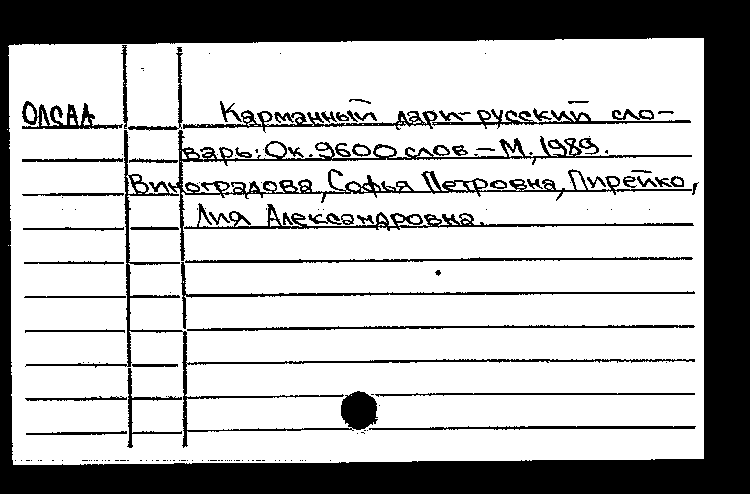 ОЛСАА Карманный дари-русский сло-
варь: Ок. 9600 слов. - М., 1989.
Виноградова, Софья Петровна, Пирейко,
Лия Александровна.